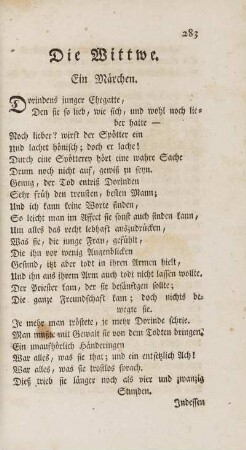 283
Die Wittwe.
Ein Märchen.
Dorindens junger Ehegatte,
Den sie so lieb, wie sich, und wohl noch lie-
ber hatte —
Noch lieber? wirft der Spötter ein
Und lachet hönisch; doch er lache!
Durch eine Spötterey hört eine wahre Sache
Drum noch nicht auf, gewiß zu seyn.
Genug, der Tod entriß Dorinden
Sehr früh den treusten, besten Mann;
Und ich kann keine Worte finden,
So leicht man im Affect sie sonst auch finden kann,
Um alles das recht lebhaft auszudrücken,
Was sie, die junge Frau, gefühlt,
Die ihn vor wenig Augenblicken
Gesund, itzt aber todt in ihren Armen hielt,
Und ihn aus ihrem Arm auch todt nicht lassen wollte.
Der Priester kam, der sie besänftgen sollte;
Die ganze Freundschaft kam; doch nichts be-
wegte sie.
Je mehr man tröstete, je mehr Dorinde schrie.
Man mußte mit Gewalt sie von dem Todten bringen.
Ein unaufhörlich Händeringen
War alles, was sie that; und ein entsetzlich Ach!
War alles, was sie trostlos sprach.
Dieß trieb sie länger noch als vier und zwanzig
Stunden.
Indessen